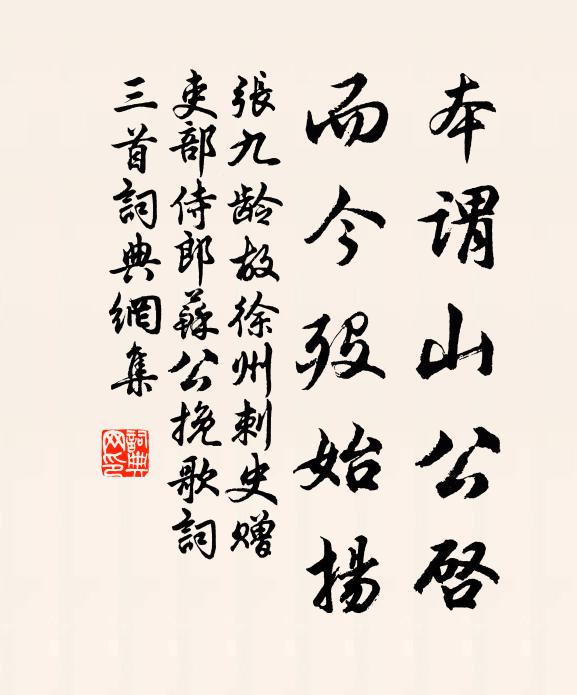 本谓山公启
而今殁始揚
張九龄故徐州刺史赠
吏部侍郎蘇公挽歌詞
三首詞典網集
詞典网印